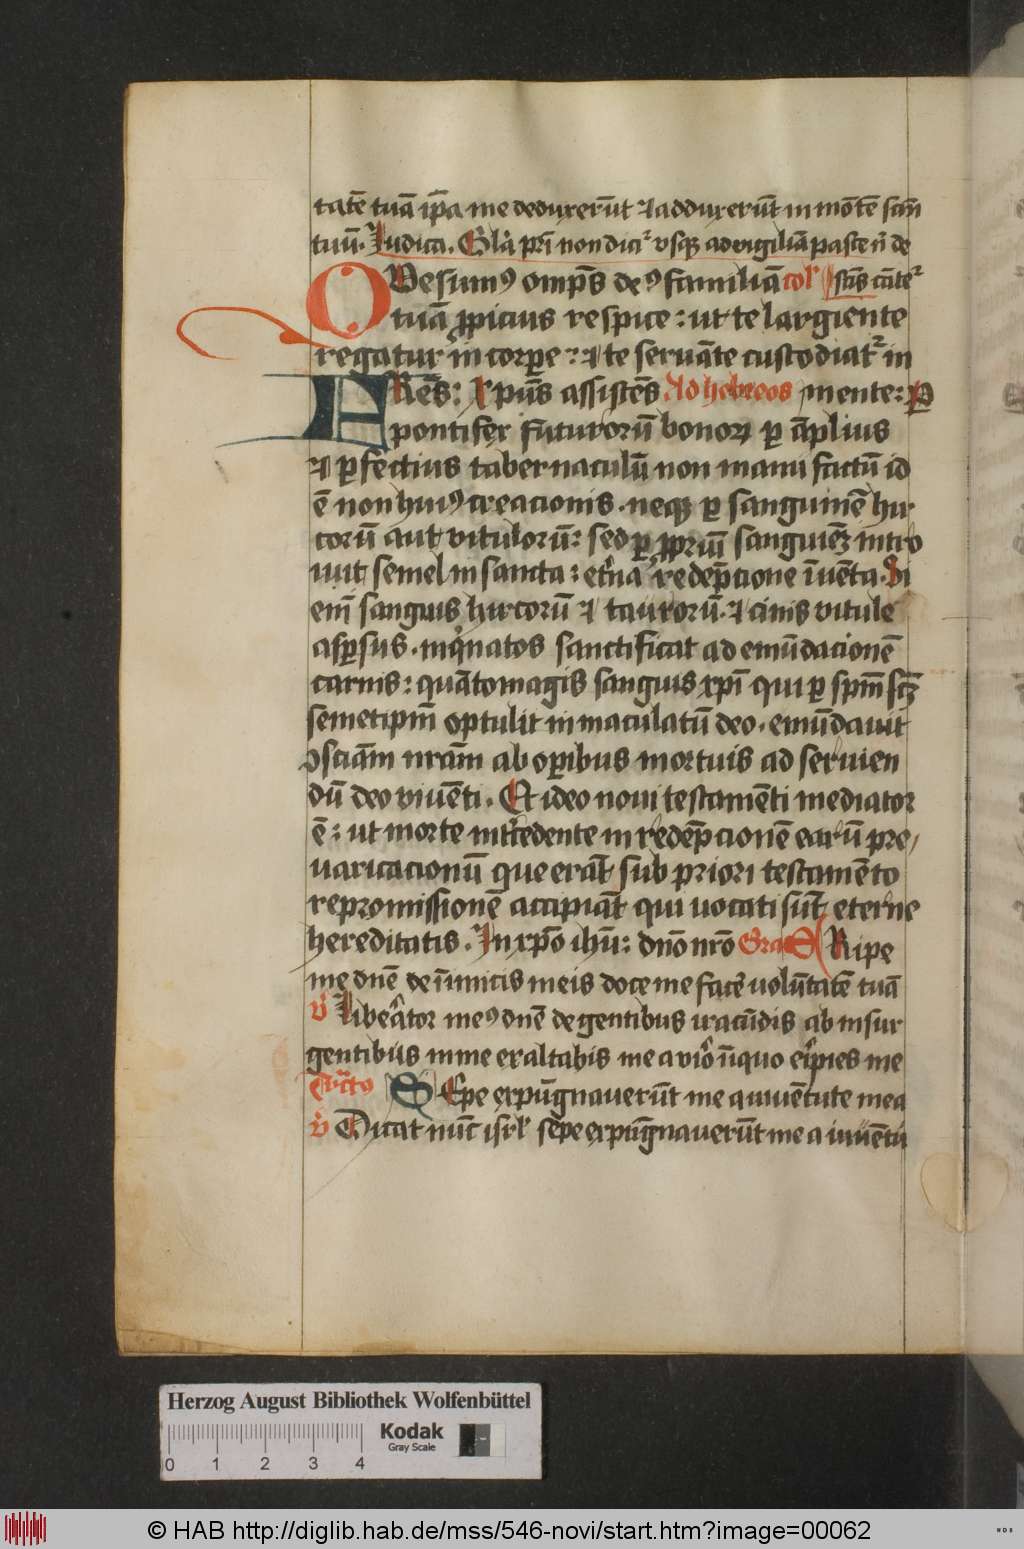 tatē tuā ip̄a me deduxerūt ⁊ adduxerūt in mōtē scm̄
tuū. Judica. Glā pr̄i non dicit᷑ vsq̃ ad vigiliā pasce n̄ de
QVesumꝰ omp̄s deꝰ familiā col̄
tuā ꝓpicius respice: ut te largiente
regatur in corꝑe: ⁊ te seruāte custodiat᷑ in
FRēs: Xpūs assistēs Ad hebreos mente: P
pontifex futurorū bonoꝝ ꝑ āplius
⁊ ꝑfectius tabernaculū non manu factū id
ē non huiꝰ creacionis. neqꝫ ꝑ sanguinē hir
corū aut vitulorū: sed ꝑ ꝓpriū sanguinēꝫ intro
iuit semel in sancta: et̓na redēpcione īuēta. Si
enī sanguis hircorū ⁊ taurorū. ⁊ cinis vitule
asꝑsus. inqͥnatos sanctificat ad emūdacionē
carnis: quātomagis sanguis xp̄i qui ꝑ spm̄ scm̄
semetip̄m optulit inmaculatū deo. emūdauit
ꝯsciām nrām ab oꝑibus mortuis ad seruien
dū deo viuēti. Et ideo noui testamēti mediator
ē: ut morte int̓cedente in redēpcionē earū pre,
uaricacionū que erāt sub priori testamēto
repromissionē accipiāt qui uocati sūt eterne
hereditatis. In xp̄o ihū: dnō nr̄o Gra Eripe
me dnē de īimicis meis doce me facere volūtatē tuā
v̓ Liberātor meꝰ dnē de gentibus iracūdis ab insur
gentibus in me exaltabis me a viro īiquo eripies me
Tract̄o SEpe expūgnauerūt me a iuuētute mea
v̓ Dicat nūc isrl̄ sepe expūgnauerūt me a iuuētu
Herzog August Bibliothek Wolfenbüttel
Kodak
Gray Scale
0 1 2 3 4
© HAB http://diglib.hab.de/mss/546-novi/start.htm?image=00062